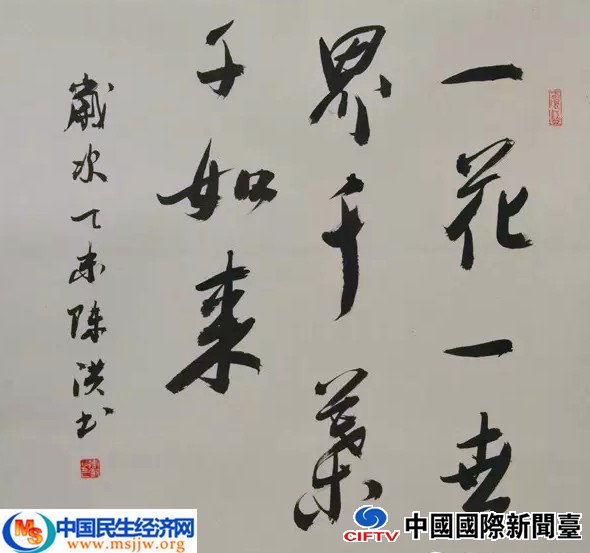 一花一世
界千葉
千如来
歲次乙未陳洪书
MS
中国民生经济网
www.msjjw.org
CIFTV
中國國際新聞臺